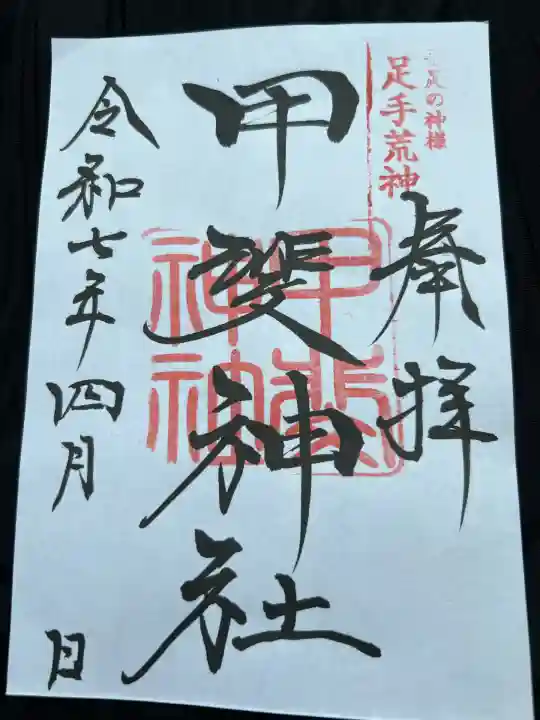 足の神様
足手荒神
奉拝
甲斐神社
甲斐
神社
令和七年四月 日